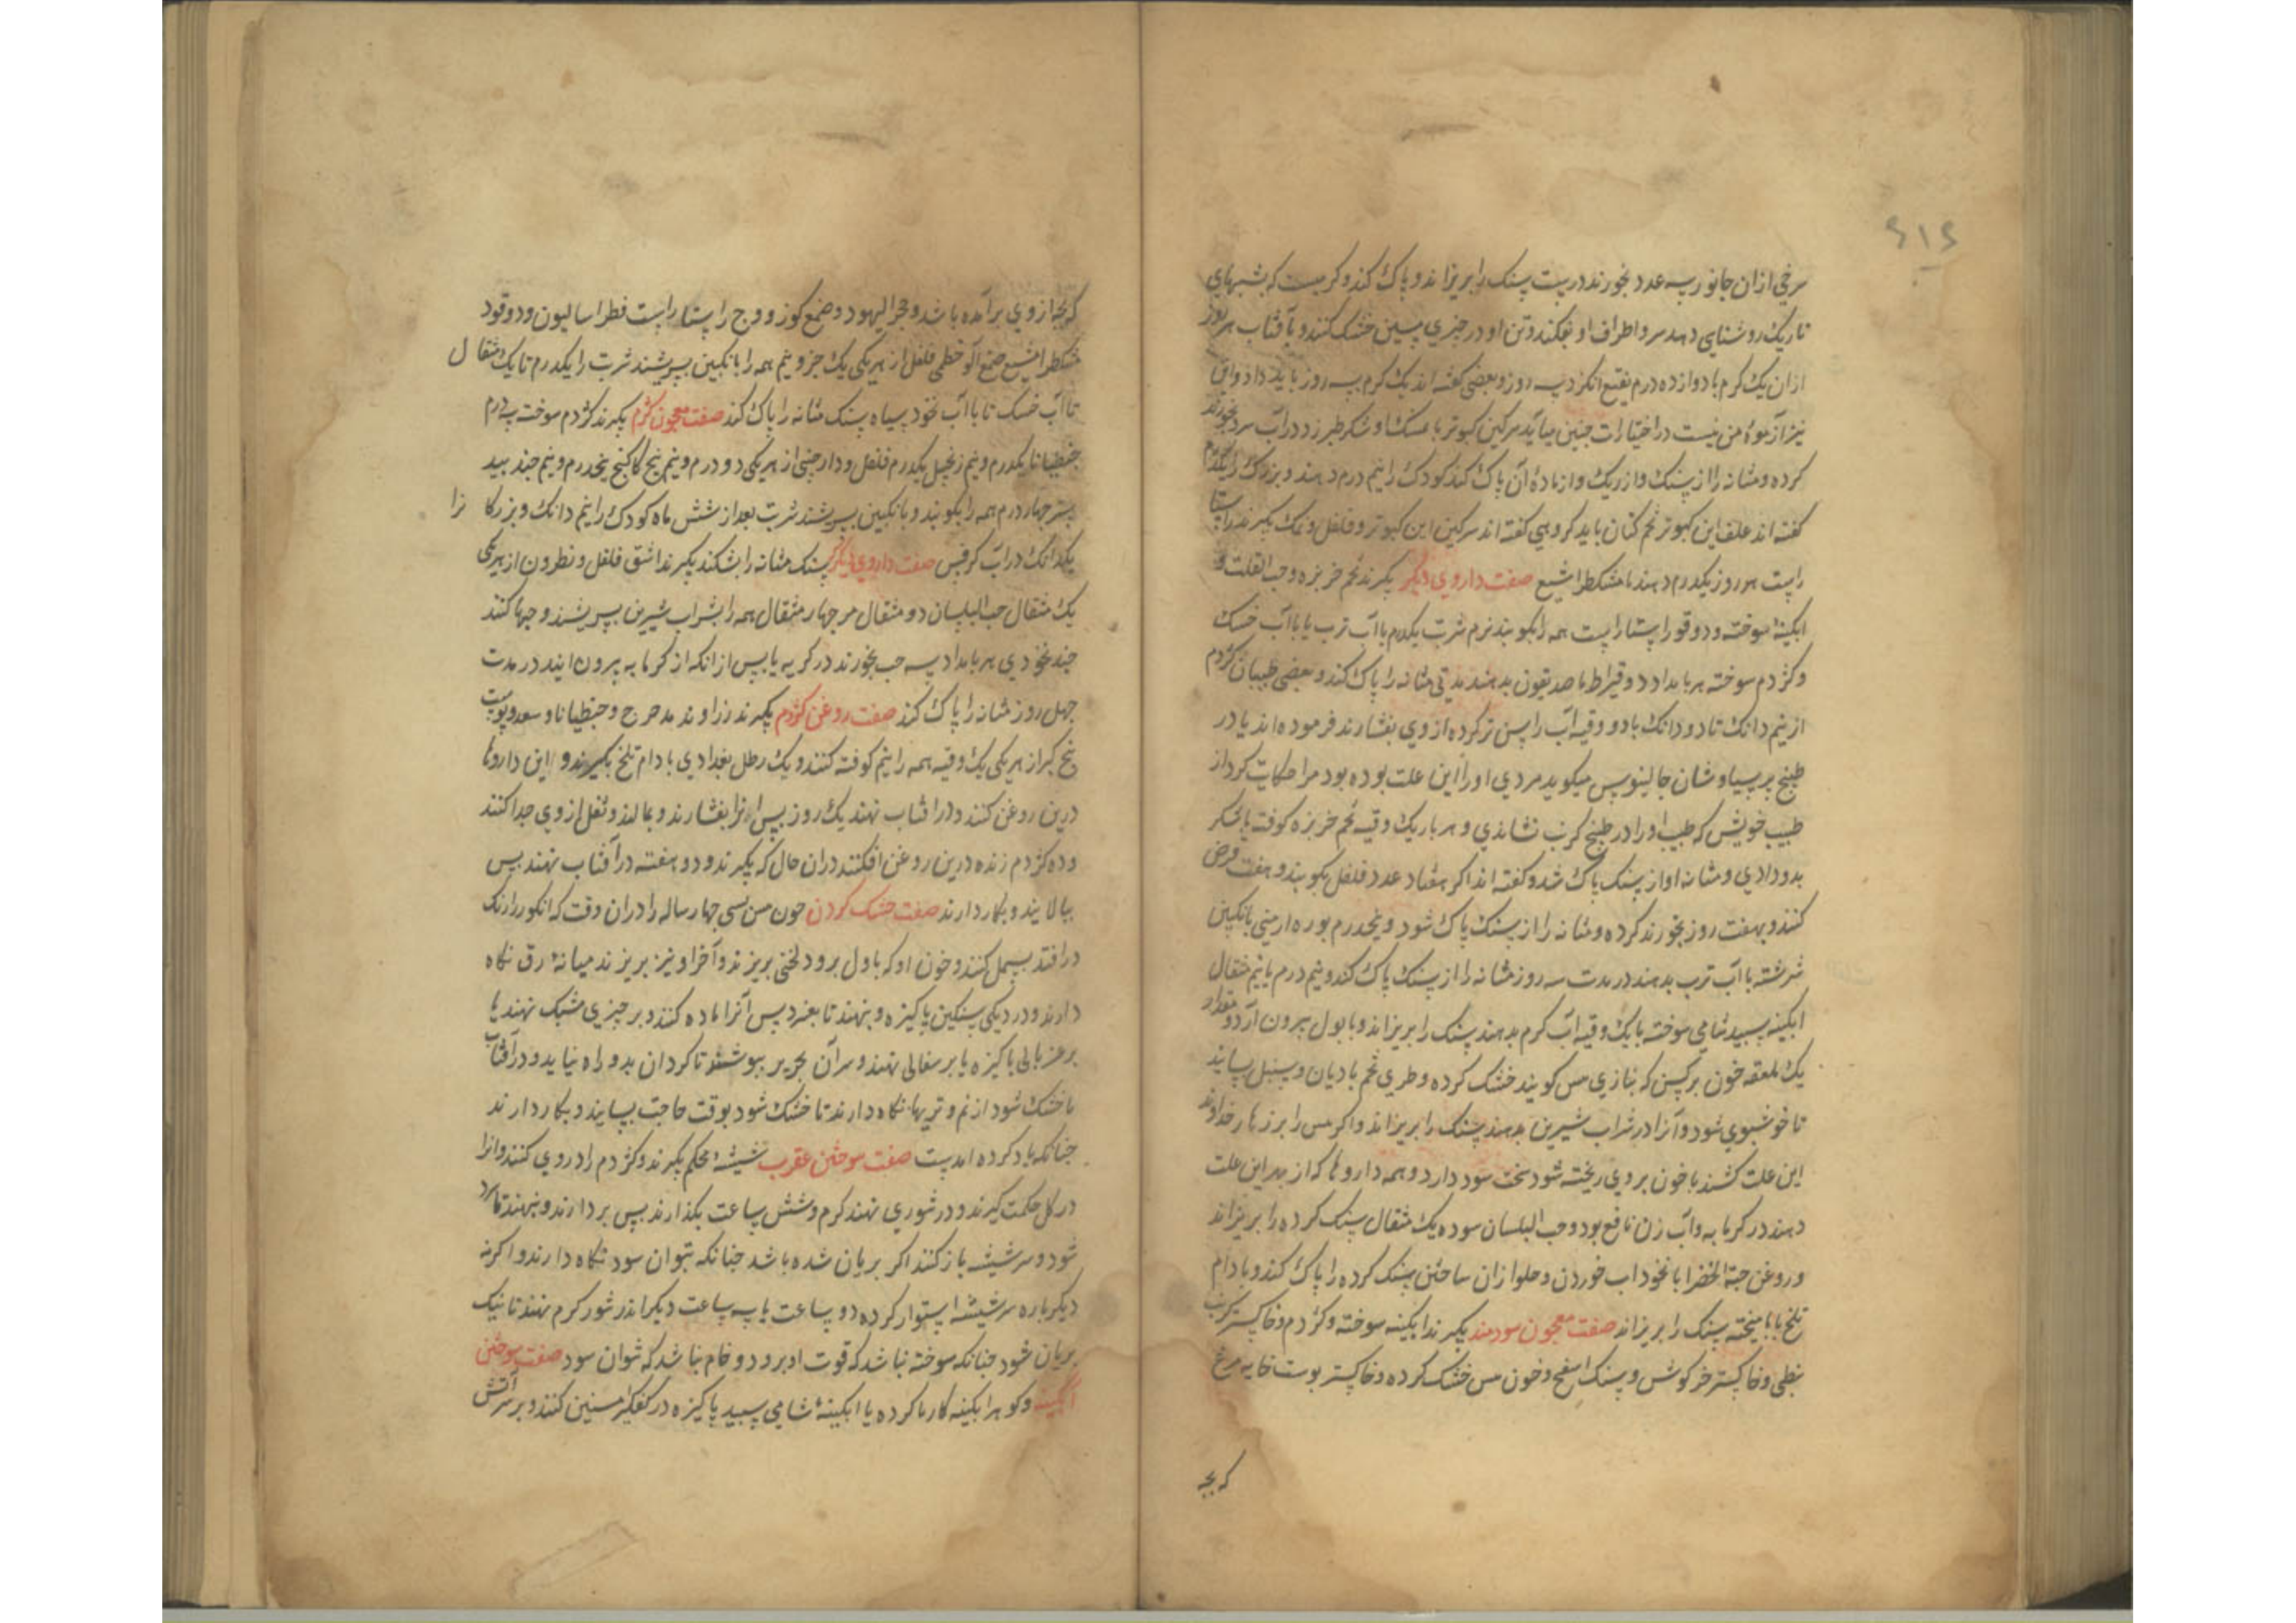 ۶۱۶
سرخی ازان جانور سه عدد بخورند درست سنک را بریزاند و پاک کند و کرمیست که بشبهای
تاریک روشنایی دهد سر و اطراف او بفکنند و تن او در چیزی مسین خشک کنند و بآفتاب هر روز
ازان یک کرم با دوازده درم نقیع انگزد سه روز و بعضی گفته اند یک کرم سه روز باید داد و این
نیز آزموده من نیست در اختیارات چنین میآید سرکین کبوتر با مشک او شکر طبرزد در آب سرد بخورند
کرده و مثانه را از سنک و از ریک و از ماده آن پاک کند کودک را نیم درم دهند و بزرک را یکدرم
گفته اند علف این کبوتر تخم کتان باید کروهی گفته اند سرکین این کبوتر و فلفل و نمک بکیرند راستا
راست هر روز یکدرم دهند با مشکطرا مشیع صفت داروی دیکر بکیرند تخم خربزه و حب القلت و
ابکینه سوخته و دوقو راستا راست همه را بکوبند نرم شربت یکدرم با آب ترب یا با آب خسک
و کژدم سوخته هر بامداد دو قیراط با صدیقون بدهند مدتی مثانه را پاک کند و بعضی طبیبان کژدم
از نیم دانک تا دو دانک با دو وقیه آب راسن تر کرده از وی بفشارند فرموده اند یا در
طبیخ پرسیاوشان جالینوس میکوید مردی او را این علت بوده بود مرا حکایت کرد از
طبیب خویش که طبیب او را در طبیخ کرنب نشاندی و هر بار یک وقیه تخم خربزه کوفته با شکر
بدو دادی و مثانه او از سنک پاک شد و گفته اند اکر هفتاد عدد فلفل بکوبند و هفت قرص
کنند و بهفت روز بخورند کرده و مثانه را از سنک پاک شود و پنجدرم بوره ارمنی بانکبین
سرشته با آب ترب بدهند در مدت سه روز مثانه را از سنک پاک کند و نیم درم یا نیم مثقال
ابکینه سپید شامی سوخته با یک وقیه آب کرم بدهند سنک را بریزاند و با بول بیرون آرد و مقدار
یک ملعقه خون بر کسن که بتازی مس کویند خشک کرده و طری تخم بادیان و سنبل بسایند
تا خوشبوی شود و آنرا در شراب شیرین بدهند سنک را بریزاند و اکر مس را بر زهار خداوند
این علت کشند تا خون بر وی ریخته شود سخت سود دارد و همه داروها که از بهر این علت
دهند در کرمابه و آب زن نافع بود و حب البلسان سوده یک مثقال سنک کرده را بریزاند
و روغن حبة الخضرا با نخوداب خوردن و حلوا ازان ساختن سنک کرده را پاک کند و بادام
تلخ با آمیخته سنک را بریزاند صفت معجون سودمند بکیرند ابکینه سوخته و کژدم و خاکستر کرنب
نبطی و خاکستر خرکوش و سنک اسفنج و خون مس خشک کرده و خاکستر پوست خایه مرغ
که بچه
که بچه از وی برآمده باشد و حجر الیهود و صمغ کوز و وج راستا راست فطراسالیون و دوقو
مشکطرامشیع صمغ آلو خطمی فلفل از هر یکی یک جزو نیم همه را بانکبین بسرشند شربت را یکدرم تا یک مثقال
تا آب خسک تا با آب نخود سیاه سنک مثانه را پاک کند صفت معجون کژدم بکیرند کژدم سوخته سه درم
جنطیانا یکدرم و نیم زنجبیل یکدرم فلفل و دارچینی از هر یکی دو درم و نیم بیخ کاکنج پنجدرم و نیم جند بید
ستر چهار درم همه را بکوبند و بانکبین بسرشند شربت بعد از شش ماه کودک را نیم دانک و بزرکانرا
یکدانک در آب کرفس صفت داروی دیکر سنک مثانه را بشکند بکیرند اشق فلفل و نطرون از هر یکی
یک مثقال حب البلسان دو مثقال مر چهار مثقال همه را بشراب شیرین بسرشند و حبها کنند
چند نخودی هر بامداد سه حب بخورند در کرمابه یا پس از انکه از کرمابه بیرون ایند در مدت
چهل روز مثانه را پاک کند صفت روغن کژدم بکیرند زراوند مدحرج و جنطیانا و سعد و پوست
بیخ کبر از هر یکی یک وقیه همه را نیم کوفته کنند و یک رطل بغدادی بادام تلخ بکیرند و این داروها
درین روغن کنند و در افتاب نهند یک روز پس انرا بفشارند و بمالند و ثفل از وی جدا کنند
و ده کژدم زنده درین روغن افکنند دران حال که بکیرند و دو هفته در آفتاب نهند پس
بپالایند و بکار دارند صفت خشک کردن خون مس نسی چهار ساله را دران وقت که انکور را رنک
درافتد بسمل کنند و خون او که باول برود لختی بریزند و آخر او نیز بریزند میانه رق نکاه
دارند و در دیکی سنکین پاکیزه و بنهند تا بفسرد پس آنرا ماده کنند و بر چیزی مشبک نهند یا
بر غربالی پاکیزه یا بر سفالی نهند و سر آن بحریر بپوشند تا کرد ان بدو راه نیابد و در آفتاب
تا خشک شود از نم و تریها نکاه دارند تا خشک شود بوقت حاجت بسایند و بکار دارند
چنانکه یاد کرده امدست صفت سوختن عقرب شیشه محکم بکیرند و کژدم را در وی کنند و انرا
در کل حکمت کیرند و در تنوری نهند کرم و شش ساعت بکذارند پس بردارند و بنهند تا سرد
شود و سر شیشه باز کنند اکر بریان شده باشد چنانکه بتوان سود نکاه دارند و اکر نه
دیکر باره سر شیشه استوار کرده دو ساعت یا سه ساعت دیکر اندر تنور کرم نهند تا نیک
بریان شود چنانکه سوخته نباشد که قوت او برود و خام نباشد که نتوان سود صفت سوختن
آبکینه و کوهر ابکینه کارنا کرده یا ابکینه شامی سپید پاکیزه در کفکیز مسین کنند و بر سر آتش